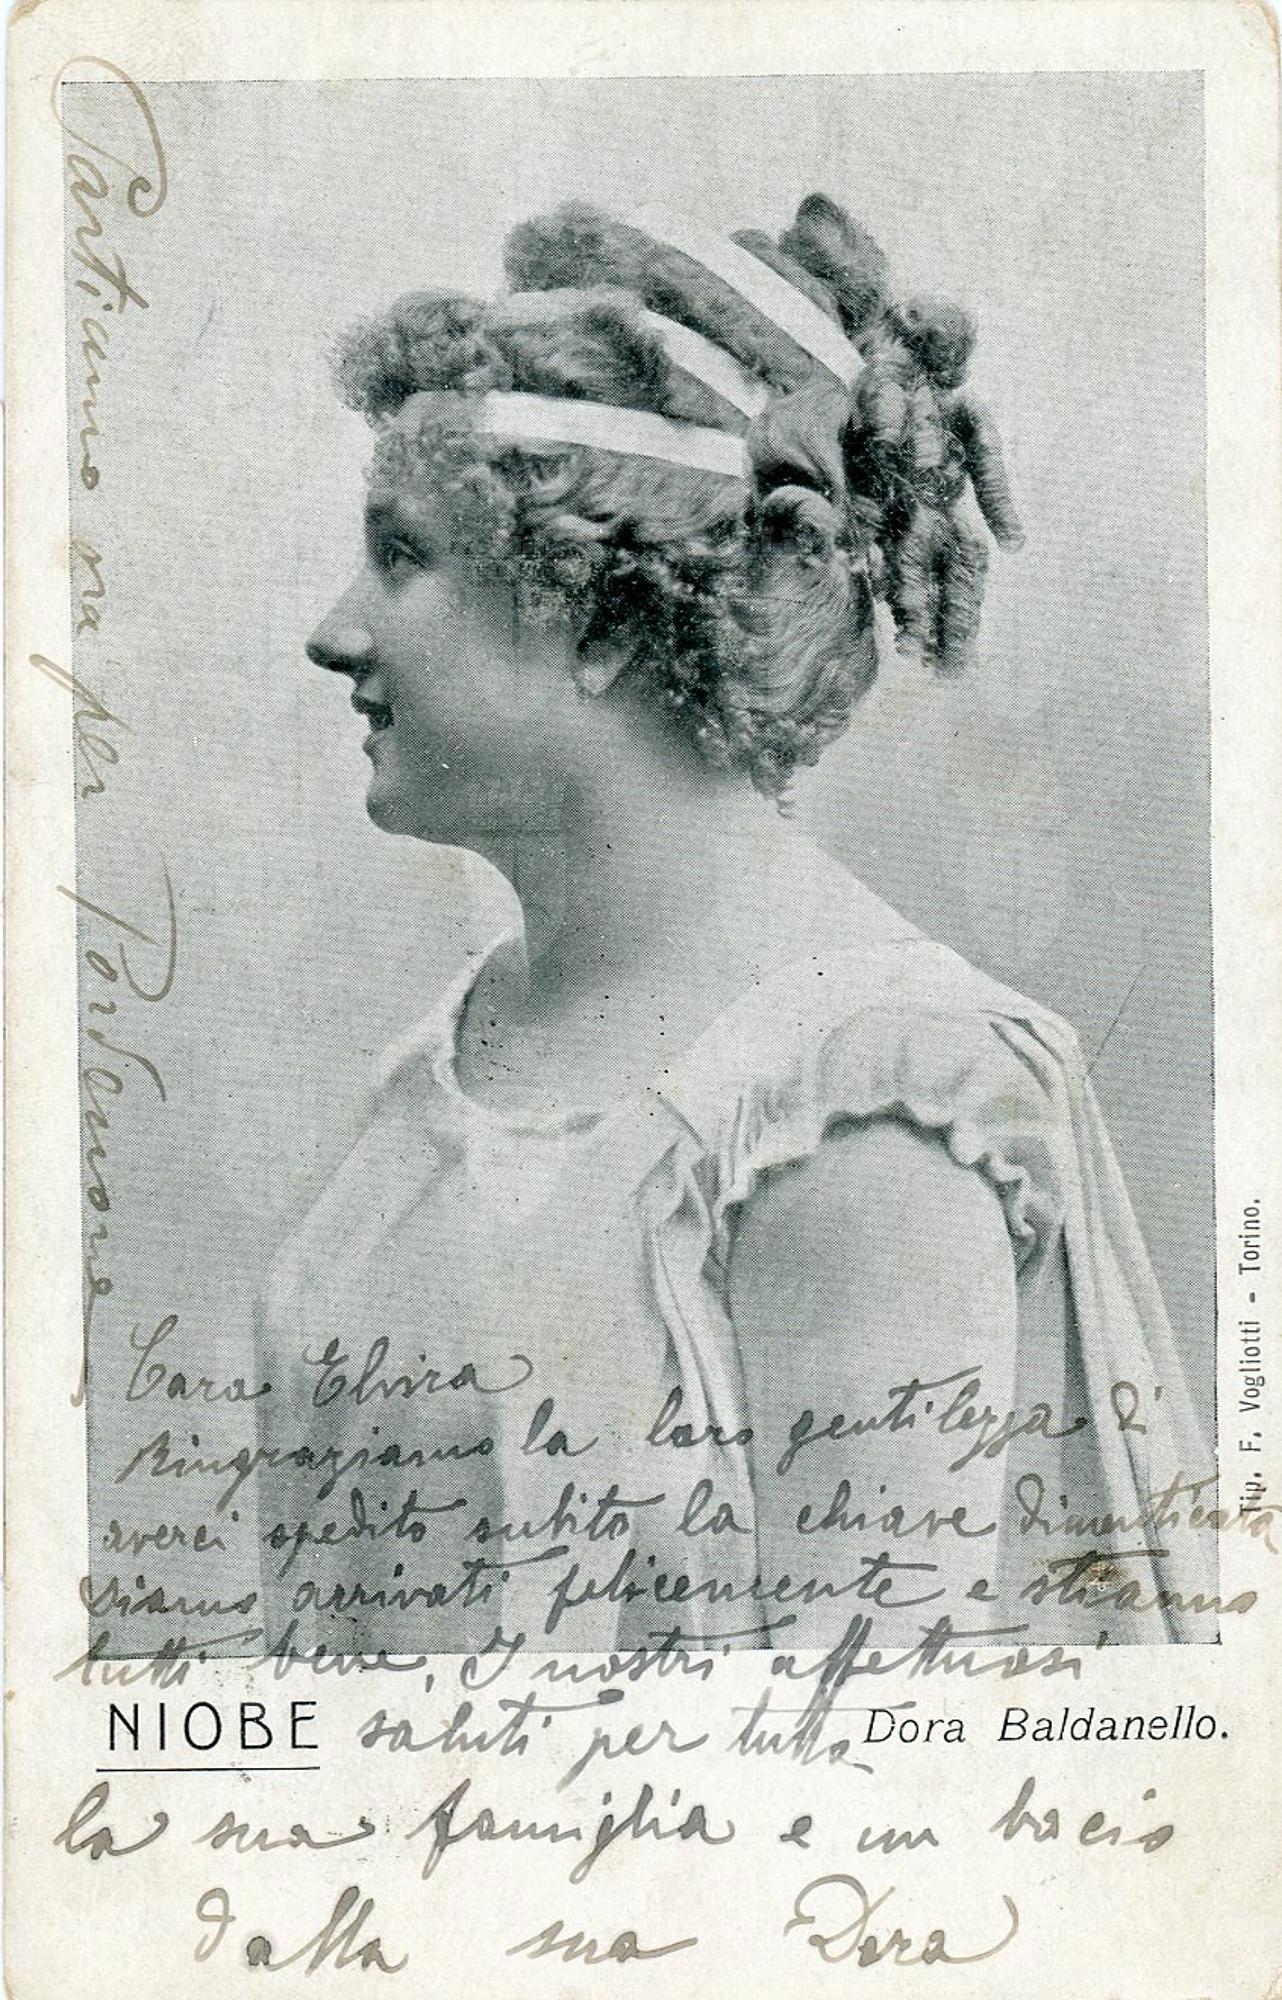 Partiamo ora per Pordenone
Cara Elvira
Ringraziamo la loro gentilezza di
averci spedito subito la chiave dimenticata
Siamo arrivati felicemente e stiamo
tutti bene. I nostri affettuosi
NIOBE saluti per tutta Dora Baldanello.
la sua famiglia e un bacio
dalla sua Dora
Tip. F. Vogliotti - Torino.